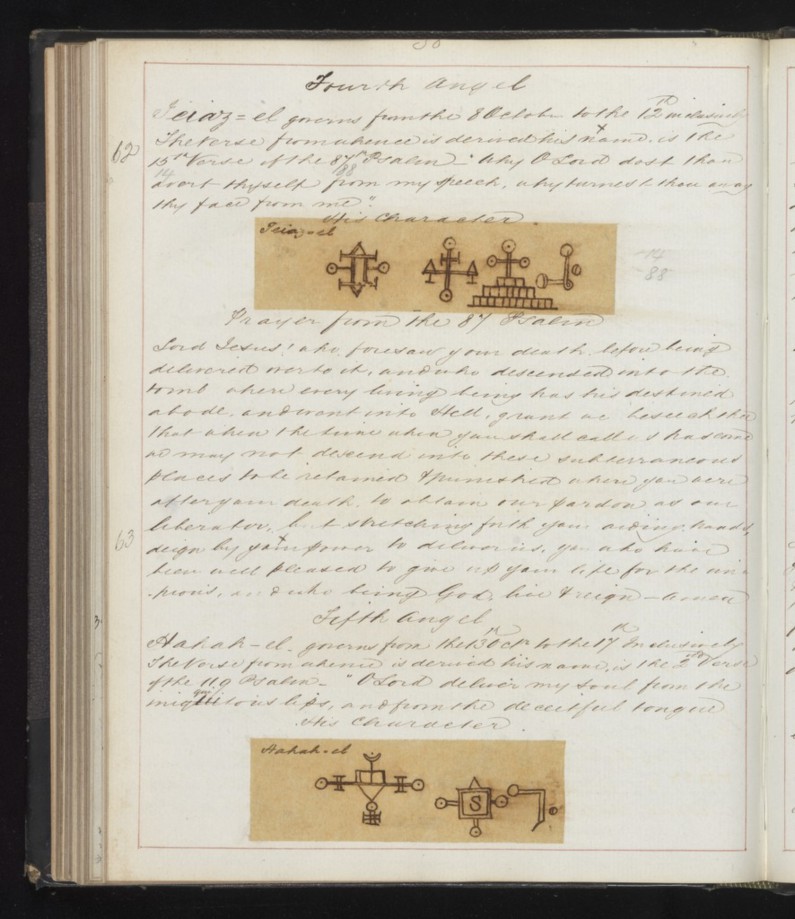 Fourth Angel
Ieiaz=el governs from the 8 October to the 12th inclusively
62
The Verse from whence is derived his name, is the
15th Verse of the 87th Psalm: "Why O Lord dost thou
14 88
avert thyself from my speech, why turnest thou away
thy face from me".
His Character.
Ieiaz=el
14
88
Prayer from the 87 Psalm
Lord Jesus! who, foresaw your death, before being
delivered over to it, and who descended into the
tomb where every living being has his destined
abode, and went into Hell, grant we beseech thee
that when the time when you shall call us has come
we may not descend into these subterraneous
places to be retained & punished where you were
after your death, to obtain our pardon as our
liberator, but stretching forth your aiding hands,
63
deign by your power to deliver us, you who have
been well pleased to give up your life for the im-
-pious, and who being God, live & reign - Amen
Fifth Angel
Hahah-el. governs from the 13th Oct to the 17th Inclusively
The Verse from whence is derived his name, is the 2nd Verse
of the 119 Psalm - "O Lord deliver my soul from the
iniquitous lips, and from the deceitful tongue
His Character.
Hahah-el
S